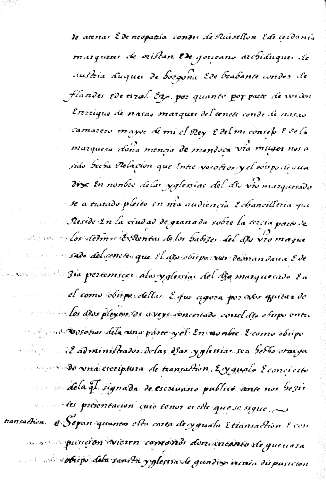 de atenas E de neopatria condes de Ruisellon E de cerdania
marqueses de oristan E de gociano archiduques de
austria duques de borgoña E de brabante condes de
flandes E de tirol. Etc. por quanto por parte de vos don
Enrrique de nasao marques del cenete conde de nasao
camarero mayor de mi el Rey E del mi consejo E de la
marquesa doña mençia de mendoça vra muger nos a
sido hecha Relaçion que Entre vosotros y el obispo de gua
dix En nonbre de las yglesias del dho vro marquesado
se a tratado pleito En mi audiencia E chancilleria que
Reside En la ciudad de granada sobre la terçia parte de
los diezmos de los del dho vro marque
sado del cenete que El dho obispo vos demandava E de
zia perteneçer a las yglesias del dho marquesado E a
el como obispo dellas E que agora por vos quitar de
los dhos pleytos aveys conçertado con el dho obispo entre
vosotros de la una parte y el En nonbre E como obispo
E administrador de las dhas yglesias se a hecho otorga
do una escriptura de transaçtion E yguala E conçierto
de la ql signada de escrivano publico ante nos hezis
tes presentaçion cuio tenor es este que se sigue
transaction Sepan quantos esta carta de yguala E transaction E con
pusicion vieren como nos don antonio de guevara
obispo de la santa yglesia de guadix